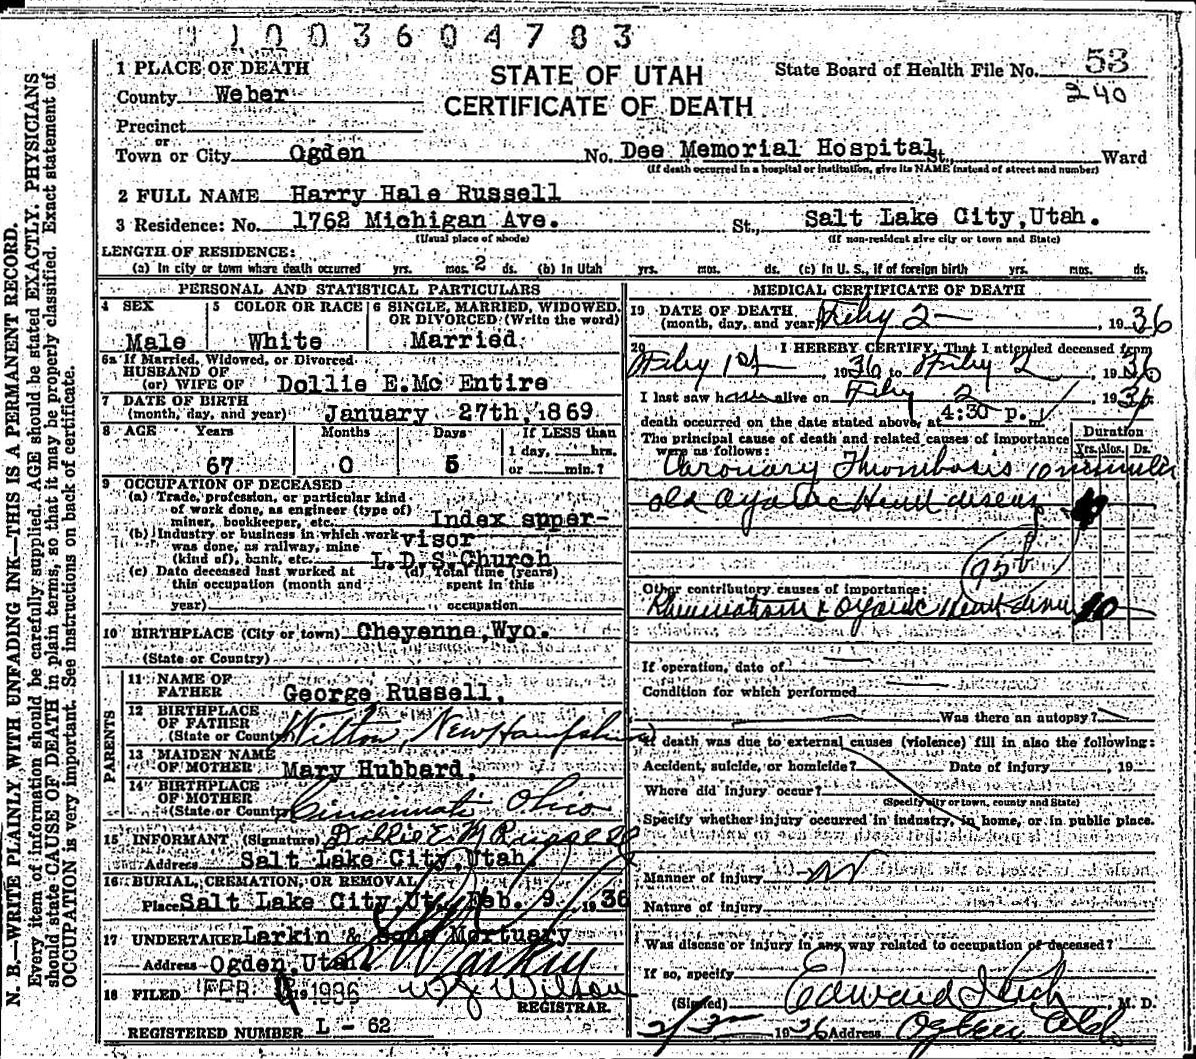 1003604783
1 PLACE OF DEATH
STATE OF UTAH
CERTIFICATE OF DEATH
State Board of Health File No. 53
240
County Weber
Precinct
or
Town or City Ogden No. Dee Memorial Hospital St., Ward
(If death occurred in a hospital or institution, give its NAME instead of street and number)
2 FULL NAME Harry Hale Russell
3 Residence: No. 1762 Michigan Ave. St., Salt Lake City, Utah.
(Usual place of abode) (If non-resident give city or town and State)
LENGTH OF RESIDENCE:
(a) In city or town where death occurred yrs. mos. 2 ds. (b) In Utah yrs. mos. ds. (c) In U. S., if of foreign birth yrs. mos. ds.
PERSONAL AND STATISTICAL PARTICULARS
4 SEX Male
5 COLOR OR RACE White
6 SINGLE, MARRIED, WIDOWED, OR DIVORCED (Write the word) Married
6a If Married, Widowed, or Divorced
HUSBAND OF
(or) WIFE OF Dollie E. Mc Entire
7 DATE OF BIRTH
(month, day, and year) January 27th, 1869
8 AGE Years Months Days If LESS than
1 day, hrs.
67 0 5 or min.?
9 OCCUPATION OF DECEASED
(a) Trade, profession, or particular kind
of work done, as engineer (type of)
miner, bookkeeper, etc. Index super-
(b) Industry or business in which work visor
was done, as railway, mine
(kind of), bank, etc. L.D.S. Church
(c) Date deceased last worked at
this occupation (month and
year)
(d) Total time (years)
spent in this
occupation
10 BIRTHPLACE (City or town) Cheyenne, Wyo.
(State or Country)
PARENTS
11 NAME OF
FATHER George Russell.
12 BIRTHPLACE
OF FATHER
(State or Country) Wilton, New Hampshire
13 MAIDEN NAME
OF MOTHER Mary Hubbard.
14 BIRTHPLACE
OF MOTHER
(State or Country) Cincinnati Ohio
15 INFORMANT (Signature) Dollie E. M Russell
Address Salt Lake City, Utah.
16 BURIAL, CREMATION, OR REMOVAL
Place Salt Lake City, Ut. Feb. 9, 1936
17 UNDERTAKER Larkin & Sons Mortuary
Address Ogden, Utah
Larkin
18 FILED FEB 1936 Wilson
REGISTRAR.
REGISTERED NUMBER L - 62
MEDICAL CERTIFICATE OF DEATH
19 DATE OF DEATH
(month, day, and year) Feby 2 , 1936
20 I HEREBY CERTIFY, That I attended deceased from
Feby 1st 1936 to Feby 2, 1936
I last saw h alive on Feby 2 1936
death occurred on the date stated above, at 4:30 p. m.
The principal cause of death and related causes of importance
were as follows:
Duration
Yrs. Mos. Ds.
Coronary Thrombosis
old Organic Heart disease
95b
Other contributory causes of importance:
Rheumatism & Organic Heart disease 10
If operation, date of
Condition for which performed
Was there an autopsy?
If death was due to external causes (violence) fill in also the following:
Accident, suicide, or homicide? Date of injury , 19
Where did injury occur?
(Specify city or town, county and State)
Specify whether injury occurred in industry, in home, or in public place.
Manner of injury
Nature of injury
Was disease or injury in any way related to occupation of deceased?
If so, specify
(Signed) Edward I Rich M. D.
2/3 1936 Address Ogden Utah
N. B.—WRITE PLAINLY, WITH UNFADING INK—THIS IS A PERMANENT RECORD.
Every item of information should be carefully supplied. AGE should be stated EXACTLY. PHYSICIANS
should state CAUSE OF DEATH in plain terms, so that it may be properly classified. Exact statement of
OCCUPATION is very important. See instructions on back of certificate.